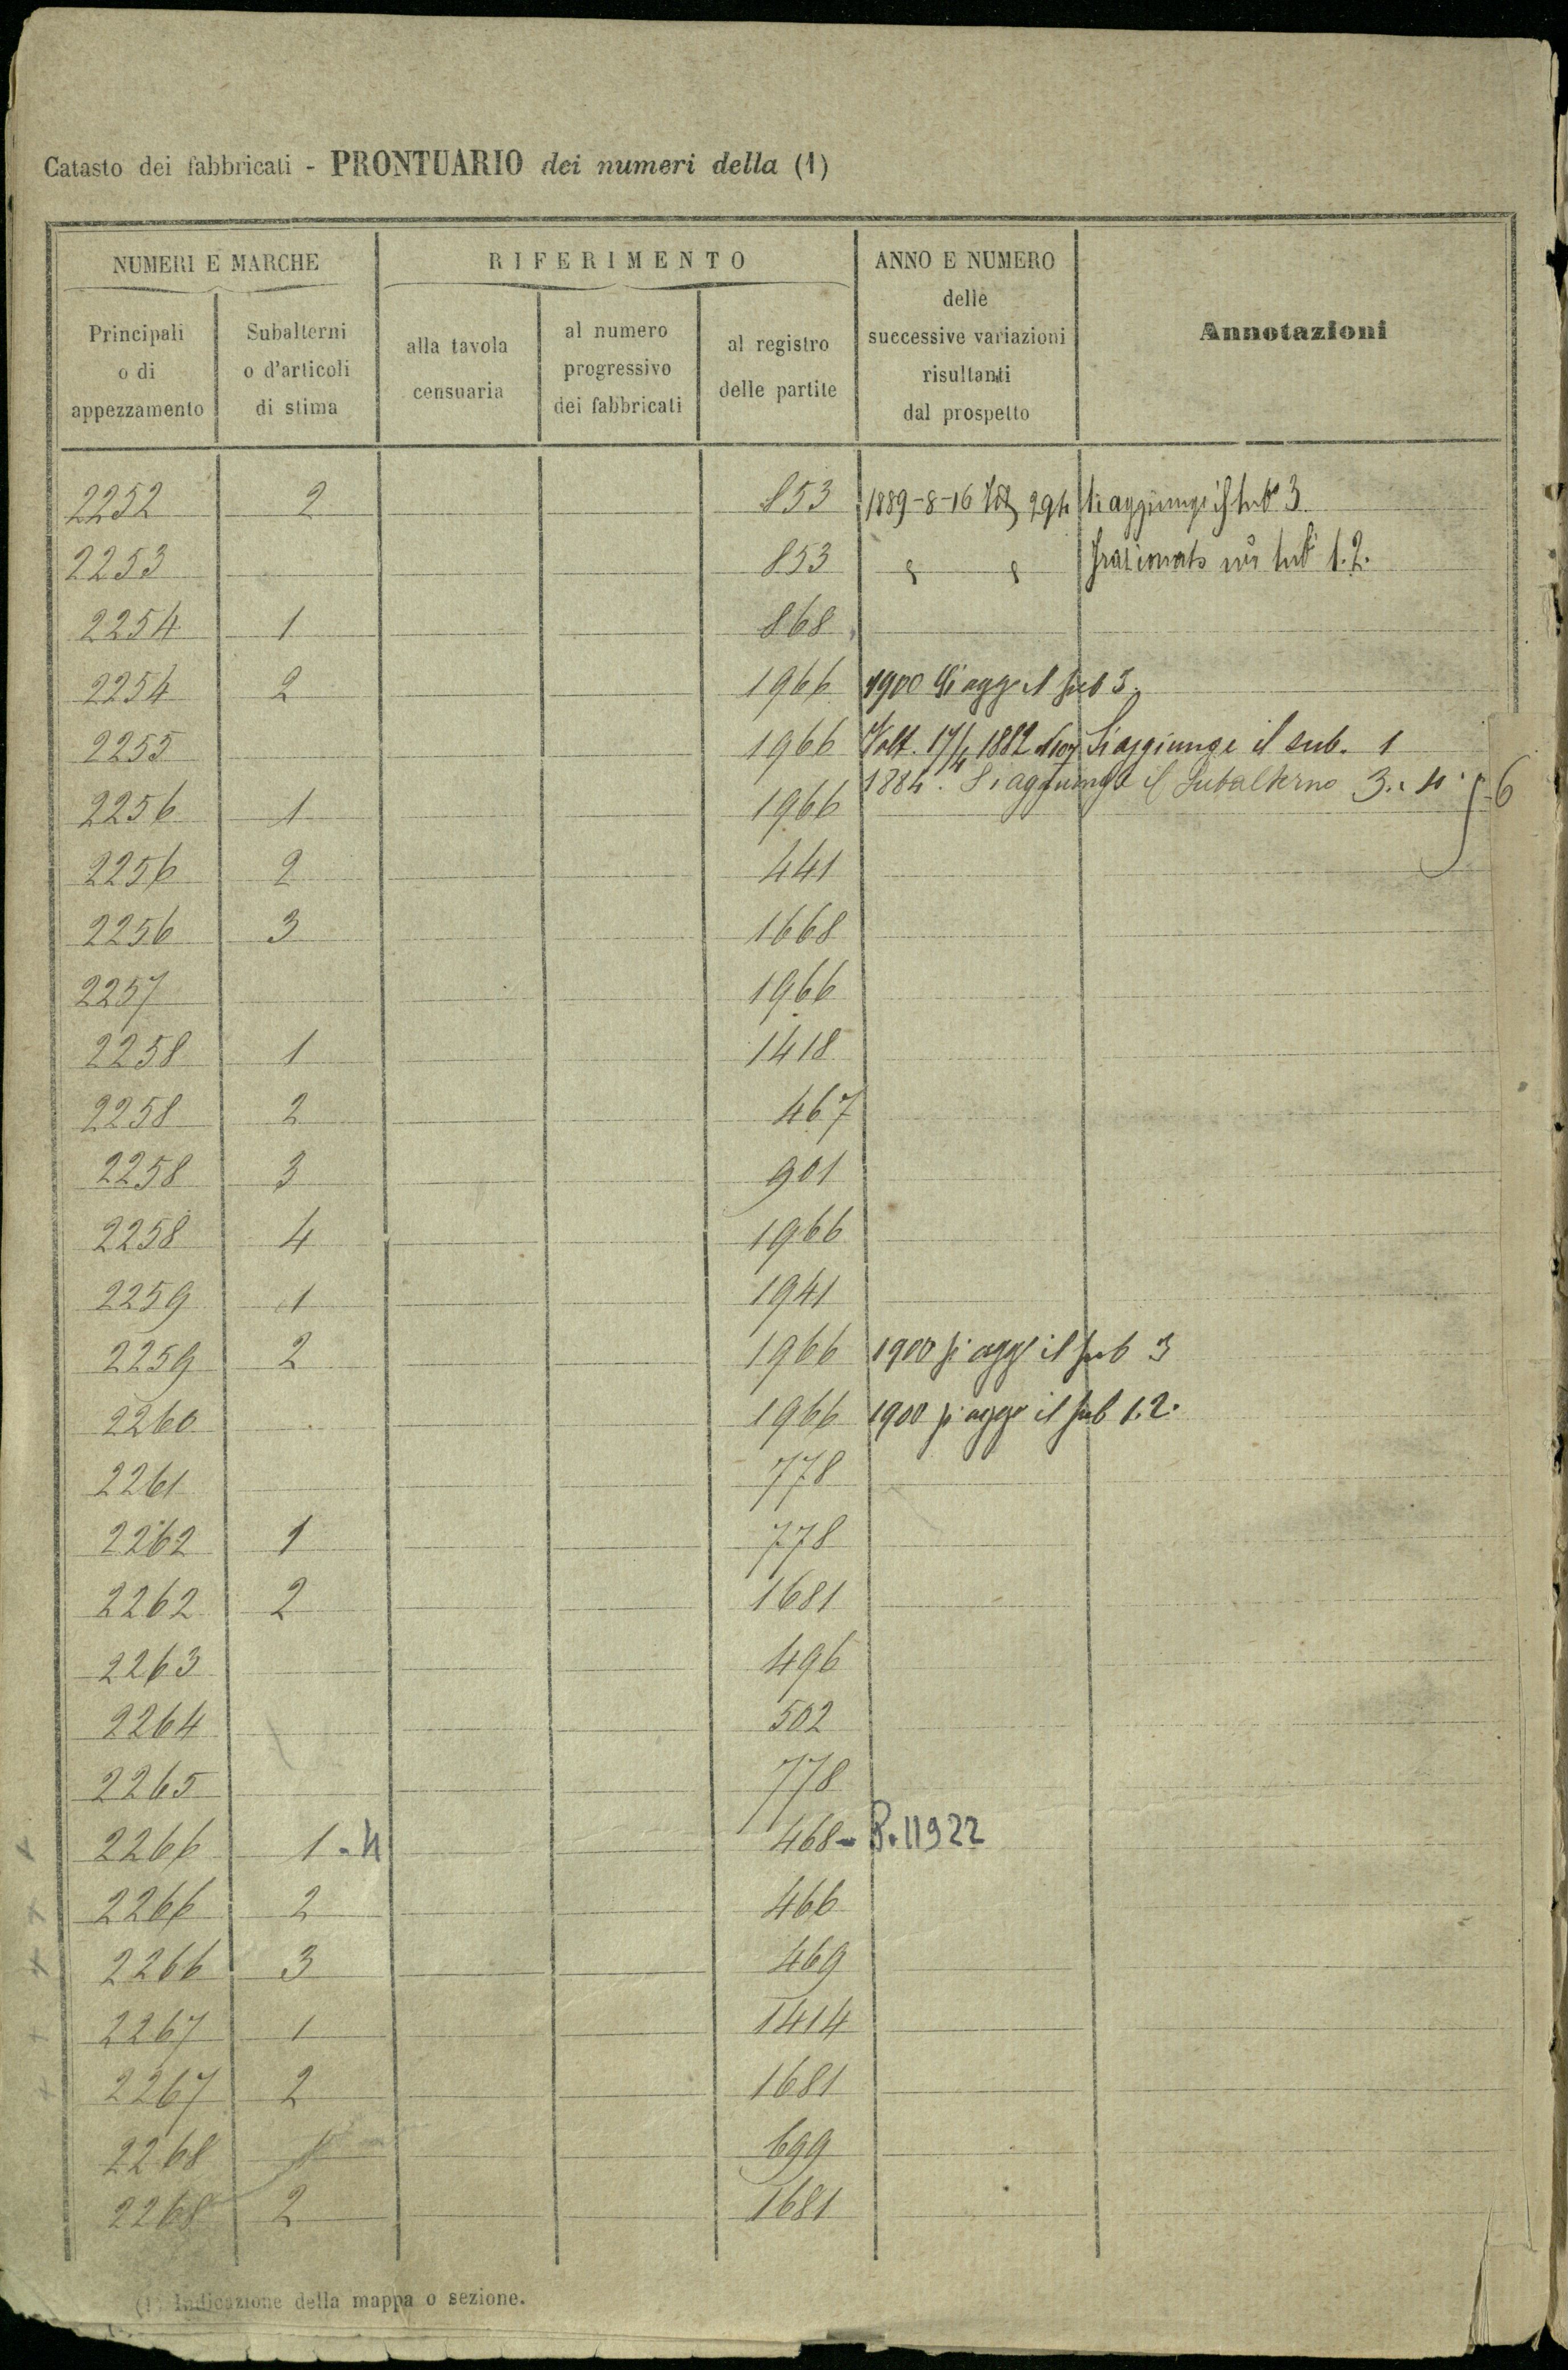 Catasto dei fabbricati - PRONTUARIO dei numeri della (1)
NUMERI E MARCHE
RIFERIMENTO
ANNO E NUMERO
delle
successive variazioni
risultanti
dal prospetto
Annotazioni
Principali
o di
appezzamento
Subalterni
o d'articoli
di stima
alla tavola
censuaria
al numero
progressivo
dei fabbricati
al registro
delle partite
2252 2 853 1889-8-16 294 si aggiunge il sub 3
2253 853 sub 1.2.
2254 1 868
2254 2 1966 1900 Si agge il sub 3.
2255 1966 Volt. 17/4 1882 Si aggiunge il sub. 1
1884. Si aggiunge il Subalterno 3. 4. 5 6
2256 1 1966
2256 2 441
2256 3 1668
2257 1966
2258 1 1418
2258 2 467
2258 3 901
2258 4 1966
2259 1 1941
2259 2 1966 1900 si agge il sub 3
2260 1966 1900 si agge il sub 1.2.
2261 778
2262 1 778
2262 2 1681
2263 496
2264 502
2265 778
2266 1-4 468- P. 11922
2266 2 466
2266 3 469
2267 1 1414
2267 2 1681
2268 1 699
2268 2 1681
(1) Indicazione della mappa o sezione.